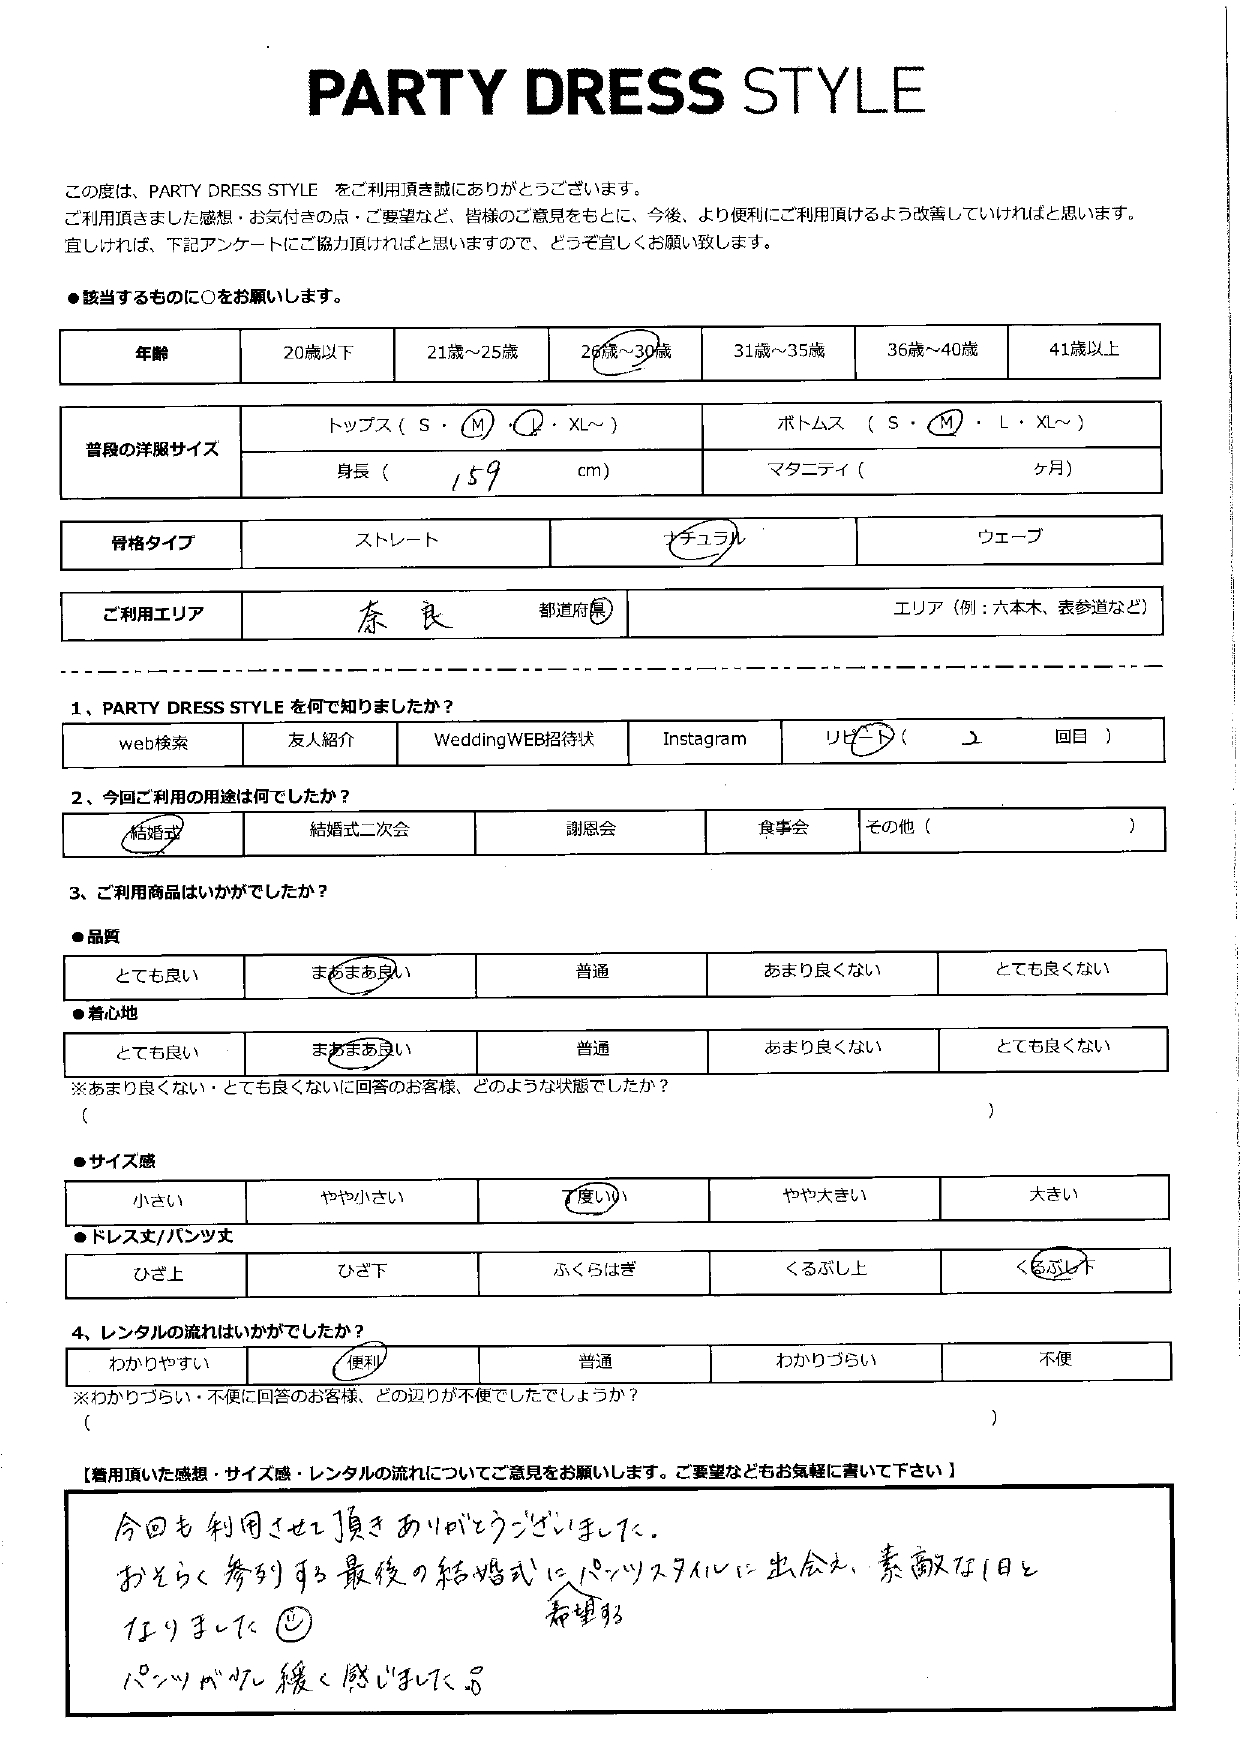 PARTY DRESS STYLE
この度は、PARTY DRESS STYLE　をご利用頂き誠にありがとうございます。
ご利用頂きました感想・お気付きの点・ご要望など、皆様のご意見をもとに、今後、より便利にご利用頂けるよう改善していければと思います。
宜しければ、下記アンケートにご協力頂ければと思いますので、どうぞ宜しくお願い致します。
●該当するものに○をお願いします。
年齢 20歳以下 21歳～25歳 26歳～30歳 31歳～35歳 36歳～40歳 41歳以上
普段の洋服サイズ
トップス ( S ・ M ・ L ・ XL～ ) ボトムス ( S ・ M ・ L ・ XL～ )
身長 ( 159 cm) マタニティ ( ヶ月)
骨格タイプ ストレート ナチュラル ウェーブ
ご利用エリア 奈良 都道府県 エリア（例：六本木、表参道など）
1、PARTY DRESS STYLE を何で知りましたか？
web検索 友人紹介 WeddingWEB招待状 Instagram リピート ( 2 回目 )
2、今回ご利用の用途は何でしたか？
結婚式 結婚式二次会 謝恩会 食事会 その他 ( )
3、ご利用商品はいかがでしたか？
●品質
とても良い まあまあ良い 普通 あまり良くない とても良くない
●着心地
とても良い まあまあ良い 普通 あまり良くない とても良くない
※あまり良くない・とても良くないに回答のお客様、どのような状態でしたか？
( )
●サイズ感
小さい やや小さい 丁度いい やや大きい 大きい
●ドレス丈/パンツ丈
ひざ上 ひざ下 ふくらはぎ くるぶし上 くるぶし下
4、レンタルの流れはいかがでしたか？
わかりやすい 便利 普通 わかりづらい 不便
※わかりづらい・不便に回答のお客様、どの辺りが不便でしたでしょうか？
( )
【着用頂いた感想・サイズ感・レンタルの流れについてご意見をお願いします。ご要望などもお気軽に書いて下さい】
今回も利用させて頂きありがとうございました.
おそらく参列する最後の結婚式に パンツスタイルに出会え、素敵な1日と
希望する
なりました
パンツが少し緩く感じました